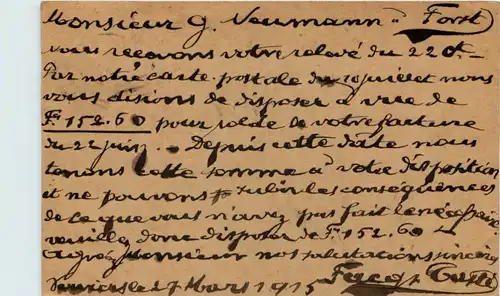 Monsieur G. Neumann Forst
nous recevons votre relevé du 22 ct.
Par notre carte postale du 10 juillet nous
vous disions de disposer à vue de
F. 152.60 pour solde de votre facture
du 22 juin. - Depuis cette date nous
tenons cette somme à votre disposition
et ne pouvons subir les conséquences
de ce que vous n'avez pas fait le nécessaire
veuillez donc disposer de F. 152.60
Agréez Monsieur nos salutations sincères
le 27 Mars 1915